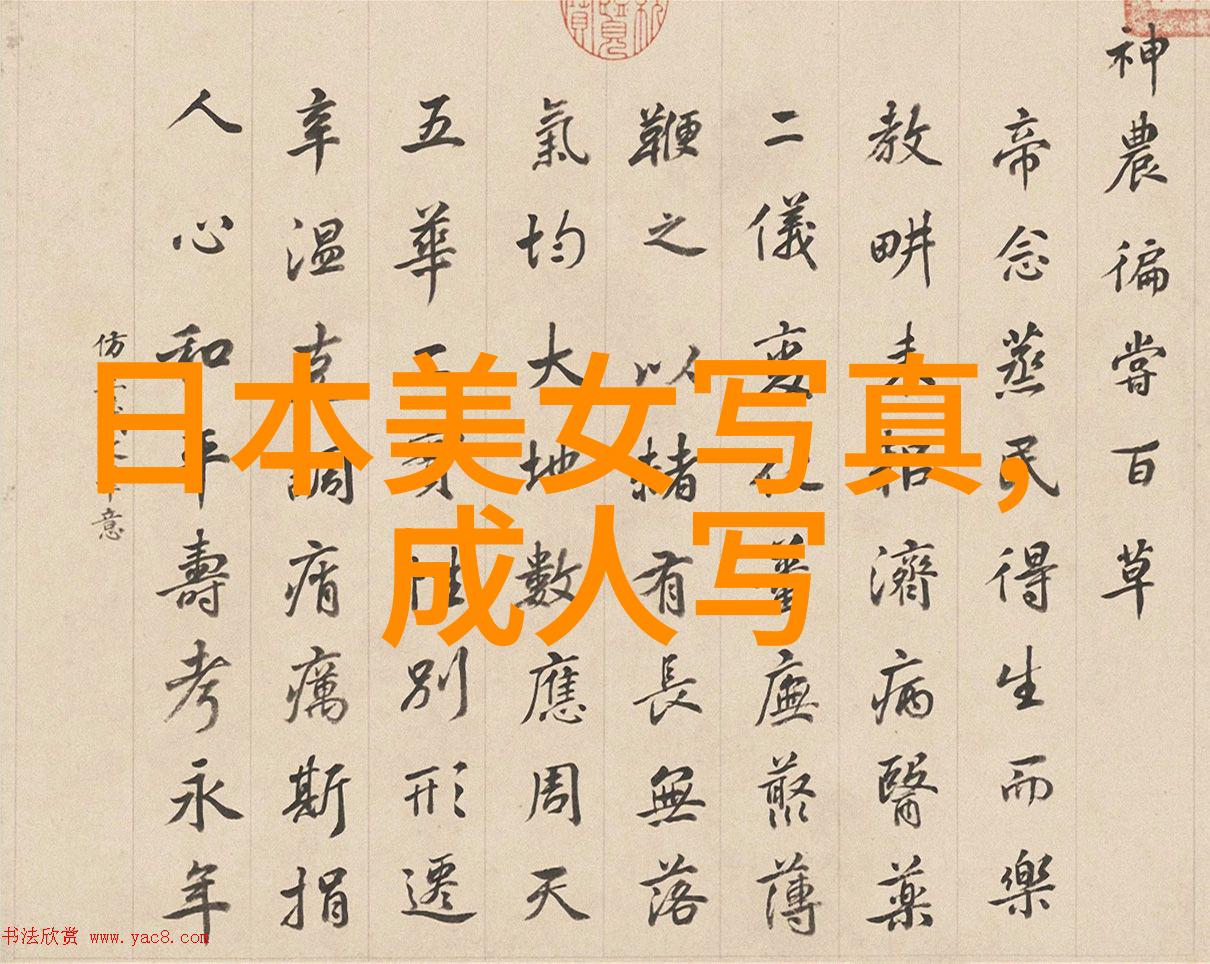 日本美女写真,
成人写
神農徧嘗百草
帝念蒸民得生而樂
教畊濟病醫藥
二儀廡叢薄
鞭之以赭有長無落
氣均大地數應周天
五華別形遷
辛温調痟癘斯捐
人心和平壽考永年
仿意
书法欣赏 www.yac8.com